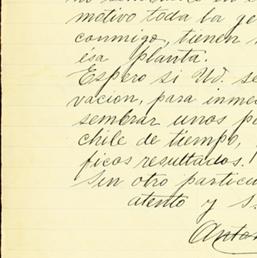 motivo toda la ge
conmigo, tienen
ésa planta.
Espero si Ud. se
vacion, para inme
sembrar unos p
chile de tiempo,
ficos resultados.
Sin otro particu
atento y s
Anton